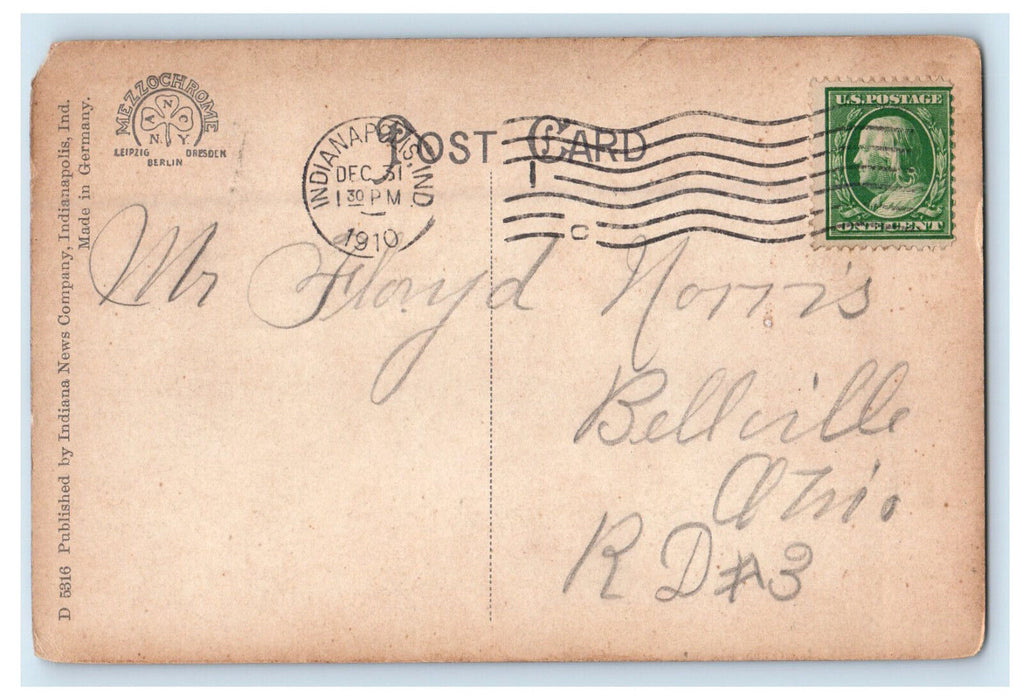 MEZZOCHROME
A N C
N.Y.
LEIPZIG DRESDEN
BERLIN
POST CARD
INDIANAPOLIS, IND.
DEC 31
1 30 PM
1910
1
C
U.S. POSTAGE
ONE CENT
D 5316 Published by Indiana News Company, Indianapolis, Ind.
Made in Germany.
Mr Floryd Norris
Bellville
Ohio
R D #3